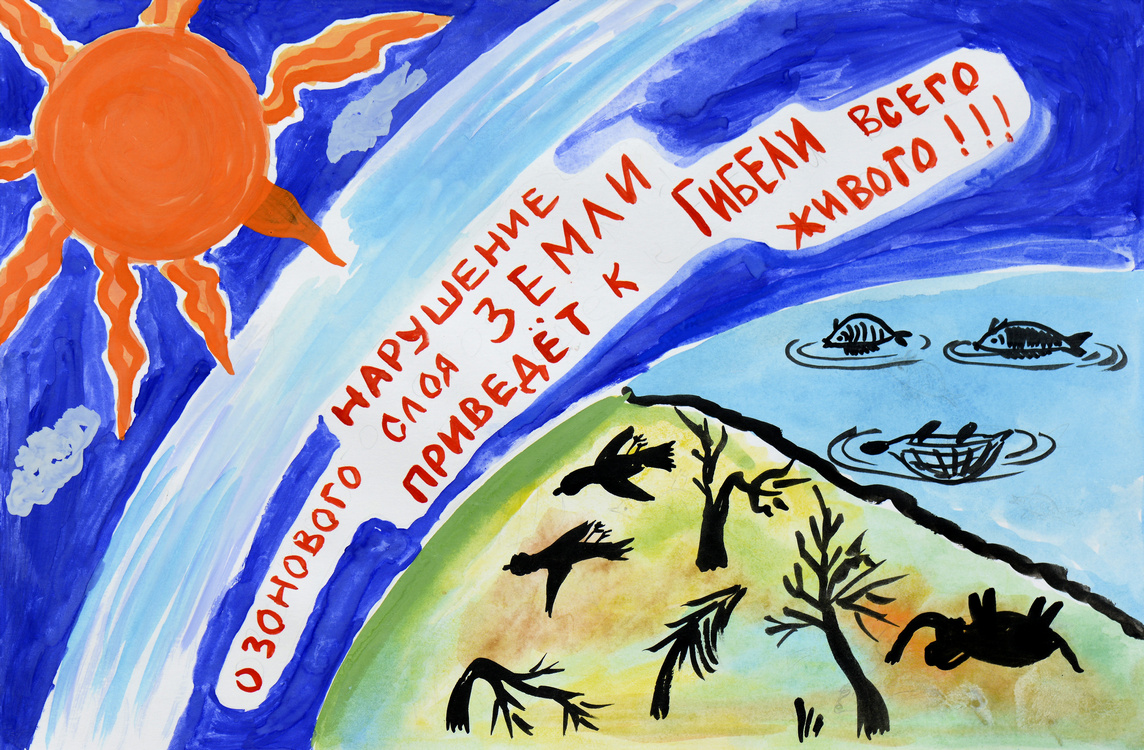 НАРУШЕНИЕ
ОЗОНОВОГО СЛОЯ ЗЕМЛИ
ПРИВЕДЁТ К
ГИБЕЛИ ВСЕГО
ЖИВОГО!!!